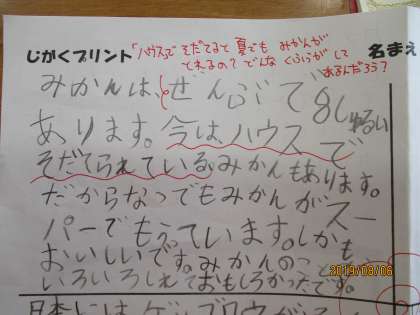 じがくプリント 「ハウスでそだてると夏でもみかんが
とれるの？どんなくふうがして
あるんだろう？
名まえ
みかんは、ぜんぶて8しゅるい
あります。今は、ハウスで
そだてられているみかんもあります。
だからなつでもみかんがスー
パーでもうっています。しかも
おいしいです。みかんのことも
いろいろしれておもしろかったです。
2019/08/06